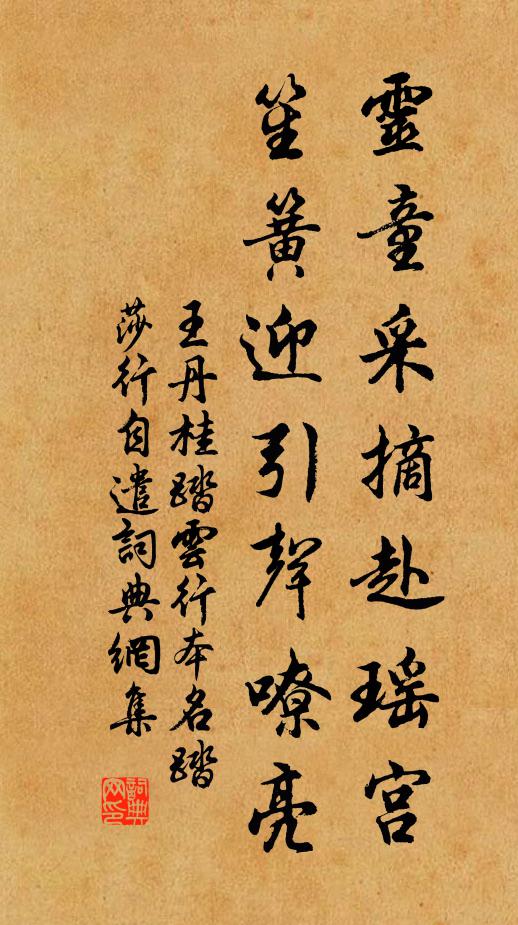 靈童采摘赴瑶宫
笙簧迎引聲嘹亮
王丹桂踏雲行本名踏
莎行自遣詞典網集
詞典
网印